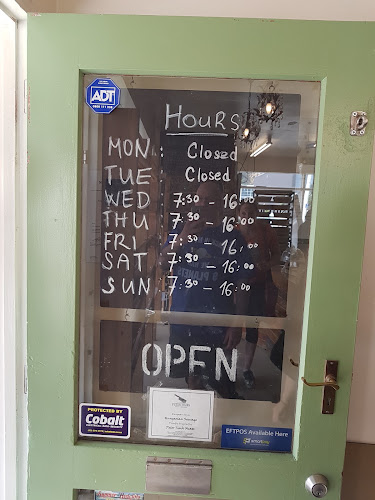 ADT
HOURS
MON : Closed
TUE Closed
WED 7:30 - 16:00
THU 7:30 - 16:00
FRI 7:30 - 16:00
SAT 7:30 - 16:00
SUN 7:30 - 16:00
OPEN
PROTECTED BY
Cobalt
EFTPOS Available Here